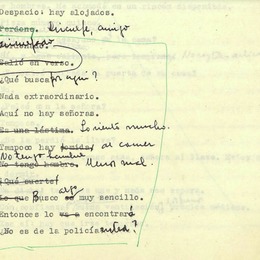 Despacio: hay alojados.
Perdone. Disculpe, amigo
disculpado
Salió en verso.
¿Qué busca por aquí?
Nada extraordinario.
Aquí no hay señoras.
Es una lástima. Lo siento mucho.
Tampoco hay comida? de comer
No tengo hambre
No tengo hambre. Menos mal.
¡Qué suerte!
Lo que Busco algo es muy sencillo.
Entonces lo va a encontrará
¿No es de la policía usted?